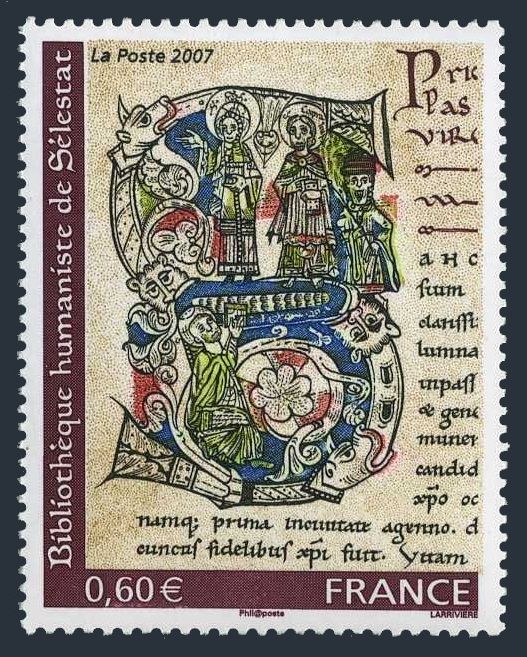 La Poste 2007
Bibliothèque humaniste de Sélestat
Prıc
Pas
VIR
A H C
scum
clarissi
lumna
inpass
& gene
muner
candid
xpo oc
namq; prima incuntate agenno. d
cunctis fidelibus xpi fuit. Vitam
0,60 €
FRANCE
Phil@poste
LARRIVIÈRE